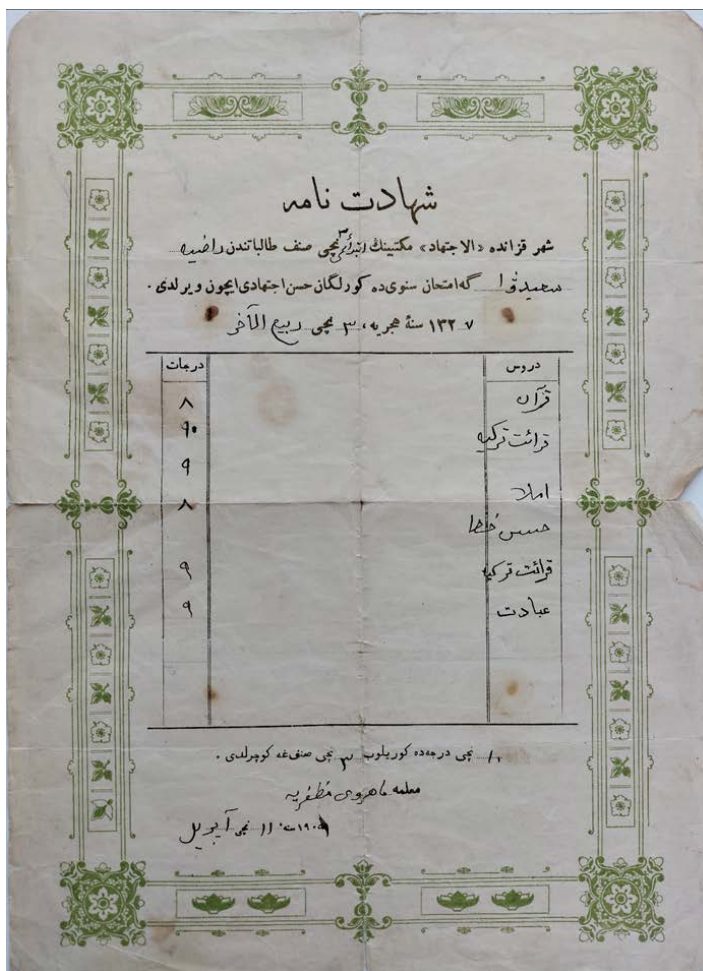 شهادت نامه
شهر قزانده «الاجتهاد» مكتبينك ابتدائی ٣ نچی صنف طالباتندن راضیه
سعیدوا گه امتحان سنوی ده كورلگان حسن اجتهادی ایچون ویرلدی.
١٣٢٧ سنهٔ هجریه، ٣ نچی ربیع الآخر
دروس درجات
قرآن ٨
قرائت تركیه ٩
املا ٩
حسن خط ٨
قرائت تركیه ٩
عبادت ٩
١ نچی درجه‌ده كوریلوب ٣ نچی صنف‌غه كوچرلدی.
معلمه ماهروی مظفریه
١٩٠٩ سنه ١١ نچی آپریل